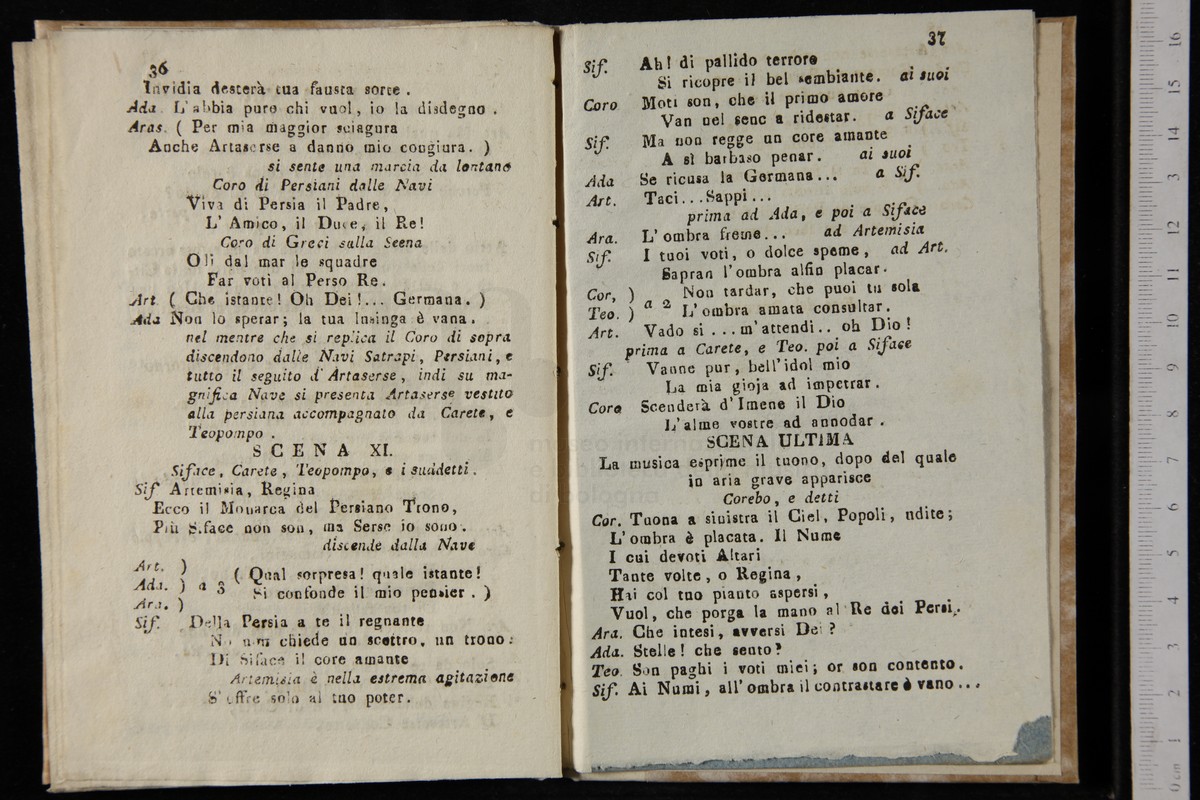 36
Invidia desterà tua fausta sorte.
Ada. L'abbia pure chi vuol, io la disdegno.
Aras. ( Per mia maggior sciagura
Anche Artaserse a danno mio congiura. )
si sente una marcia da lontano
Coro di Persiani dalle Navi
Viva di Persia il Padre,
L' Amico, il Duce, il Re!
Coro di Greci sulla Scena
Olì dal mar le squadre
Far voti al Perso Re.
Art. ( Che istante! Oh Dei!... Germana. )
Ada Non lo sperar; la tua lusinga è vana.
nel mentre che si replica il Coro di sopra
discendono dalle Navi Satrapi, Persiani, e
tutto il seguito d'Artaserse, indi su ma-
gnifica Nave si presenta Artaserse vestito
alla persiana accompagnato da Carete, e
Teopompo.
SCENA XI.
Siface, Carete, Teopompo, e i suddetti.
Sif Artemisia, Regina
Ecco il Monarca del Persiano Trono,
Più Siface non son, ma Serse io sono.
discende dalla Nave
Art. )
Ada. ) a 3 ( Qual sorpresa! quale istante!
Ara. ) Si confonde il mio pensier. )
Sif. Della Persia a te il regnante
Non chiede un scettro, un trono:
Di Siface il core amante
Artemisia è nella estrema agitazione
S'offre solo al tuo poter.
37
Sif. Ah! di pallido terrore
Si ricopre il bel sembiante. ai suoi
Coro Moti son, che il primo amore
Van nel seno a ridestar. a Siface
Sif. Ma non regge un core amante
A sì barbaso penar. ai suoi
Ada Se ricusa la Germana... a Sif.
Art. Taci...Sappi...
prima ad Ada, e poi a Siface
Ara. L'ombra freme... ad Artemisia
Sif. I tuoi voti, o dolce speme, ad Art.
Sapran l'ombra alfin placar.
Cor, ) a 2 Non tardar, che puoi tu sola
Teo. ) L'ombra amata consultar.
Art. Vado si ...m'attendi.. oh Dio!
prima a Carete, e Teo. poi a Siface
Sif. Vanne pur, bell'idol mio
La mia gioja ad impetrar.
Coro Scenderà d'Imene il Dio
L'alme vostre ad annodar.
SCENA ULTIMA
La musica esprime il tuono, dopo del quale
in aria grave apparisce
Corebo, e detti
Cor. Tuona a sinistra il Ciel, Popoli, udite;
L'ombra è placata. Il Nume
I cui devoti Altari
Tante volte, o Regina,
Hai col tuo pianto aspersi,
Vuol, che porga la mano al Re dei Persi.
Ara. Che intesi, avversi Dei?
Ada. Stelle! che sento?
Teo. Son paghi i voti miei; or son contento.
Sif. Ai Numi, all'ombra il contrastare è vano...